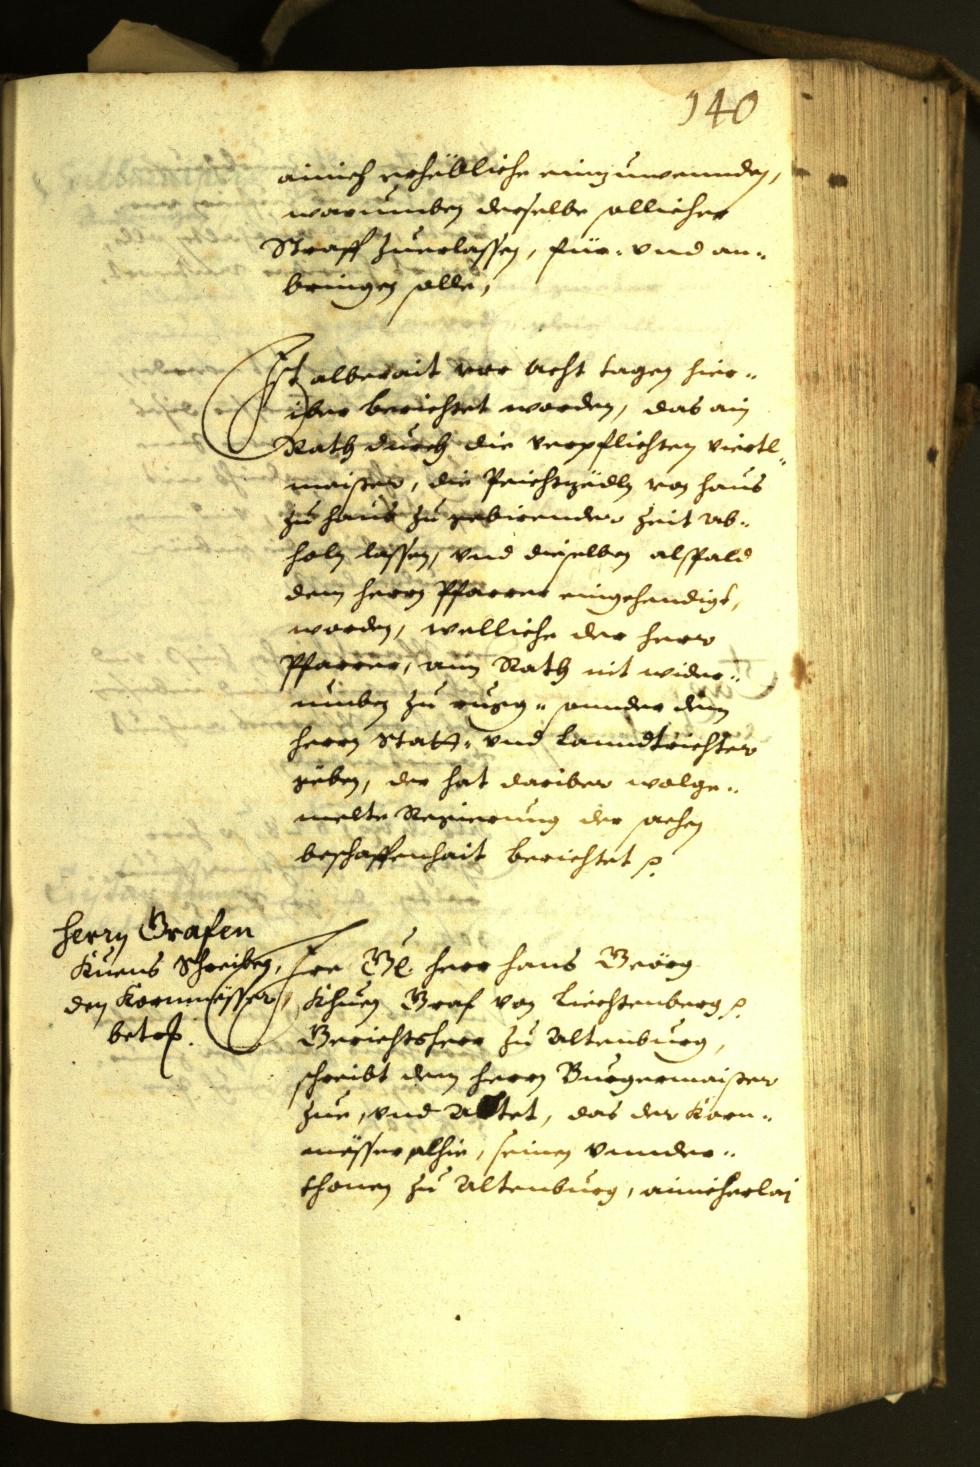 140
ainich erhebliche einzuwennden,
warumben derselbe sollicher
Straff zuerlassen, für- vnd an-
bringen solle,
Ist alberait vor acht tagen hier-
iber berichtet worden, das ain
Rath durch die verpflichten viertl-
maister, die Peichtzödln von haus
zu haus zu gebirender Zeit ab-
holn lassen, vnd dieselben alspald
dem herrn Pfarrer eingehendigt,
worden, welliche der herr
Pfarrer, aim Rath nit wider-
umben zu sonnder dem
herrn Statt- vnd Lanndtrichter
geben, der hat dariber wolge-
melte Regierung der sachen
beschaffenhait berichtet p.
Herrn Grafen
Kuens Schreiben,
den Kornmässer
betr.
Ire Gl. herr hans Geörg
Khuen Graf von Liechtenberg p.
Gerichtsherr zu Altenburg,
schreibt dem herrn Burgermaister
zue, vnd das der Korn-
mässer alhie, seinen vnnder-
thonen zu Altenburg, ainicherlai